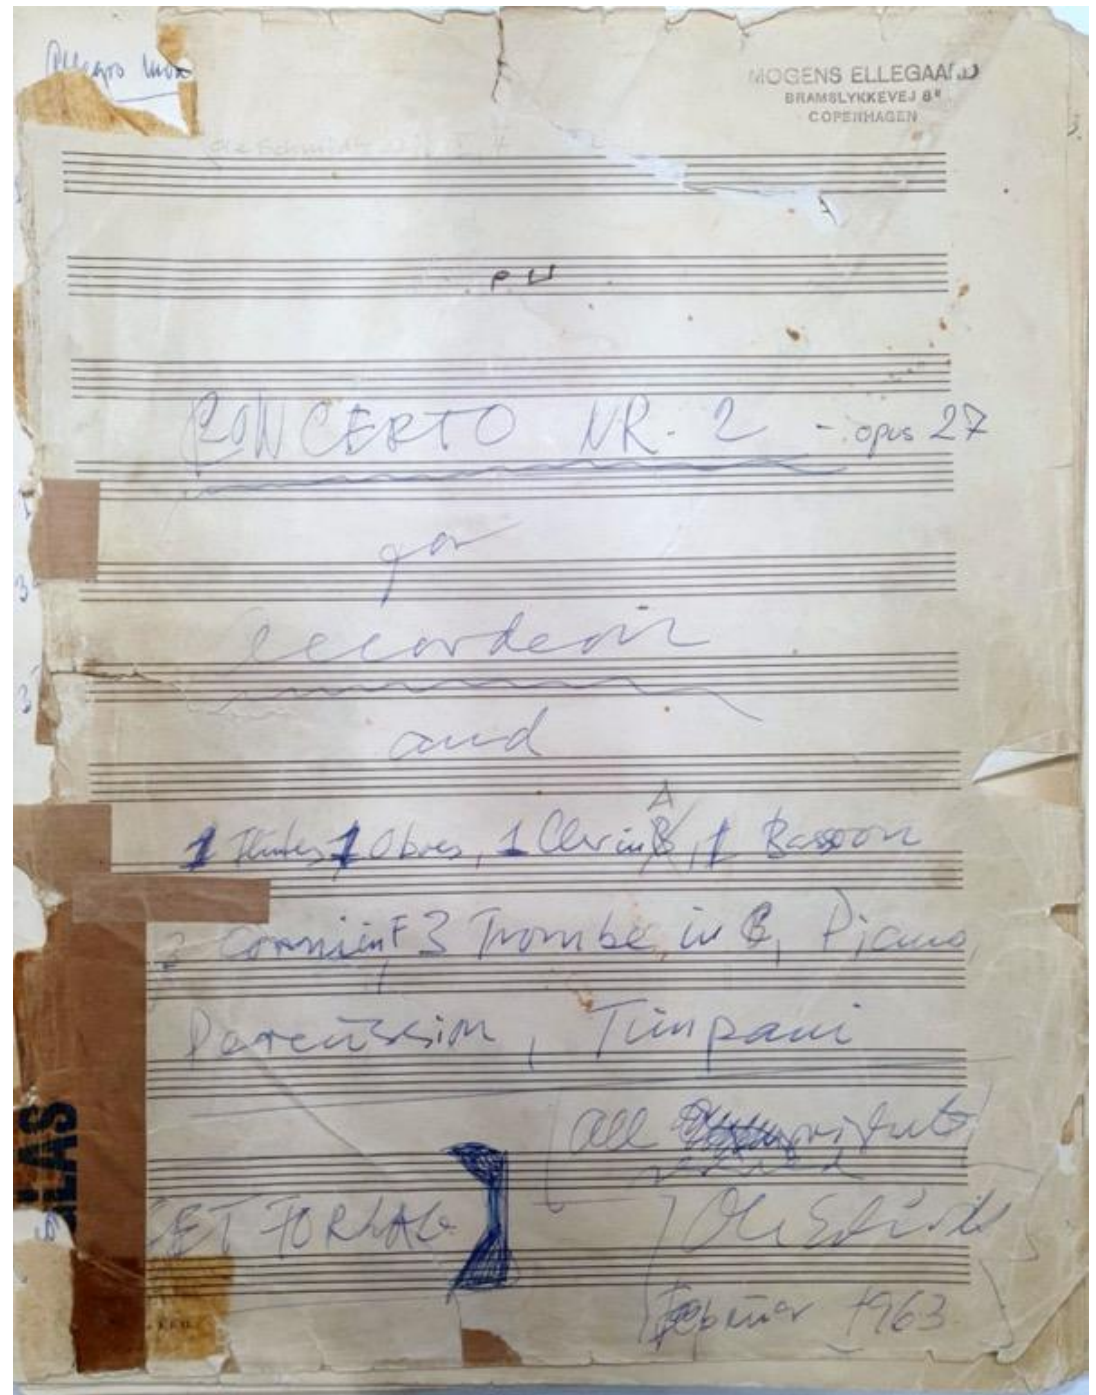 Allegro
MOGENS ELLEGAARD
BRAMSLYKKEVEJ 8
COPENHAGEN
Ole Schmidt
CONCERTO NR. 2 - opus 27
for
accordeon
and
A
1 Flutes, 1 Oboes, 1 Clar in B, 1 Bassoon
Corni in F 3 Trombe in B, Piano,
Percussion, Timpani
all
LAS
ET FORLAG
Ole Schmidt
Februar 1963